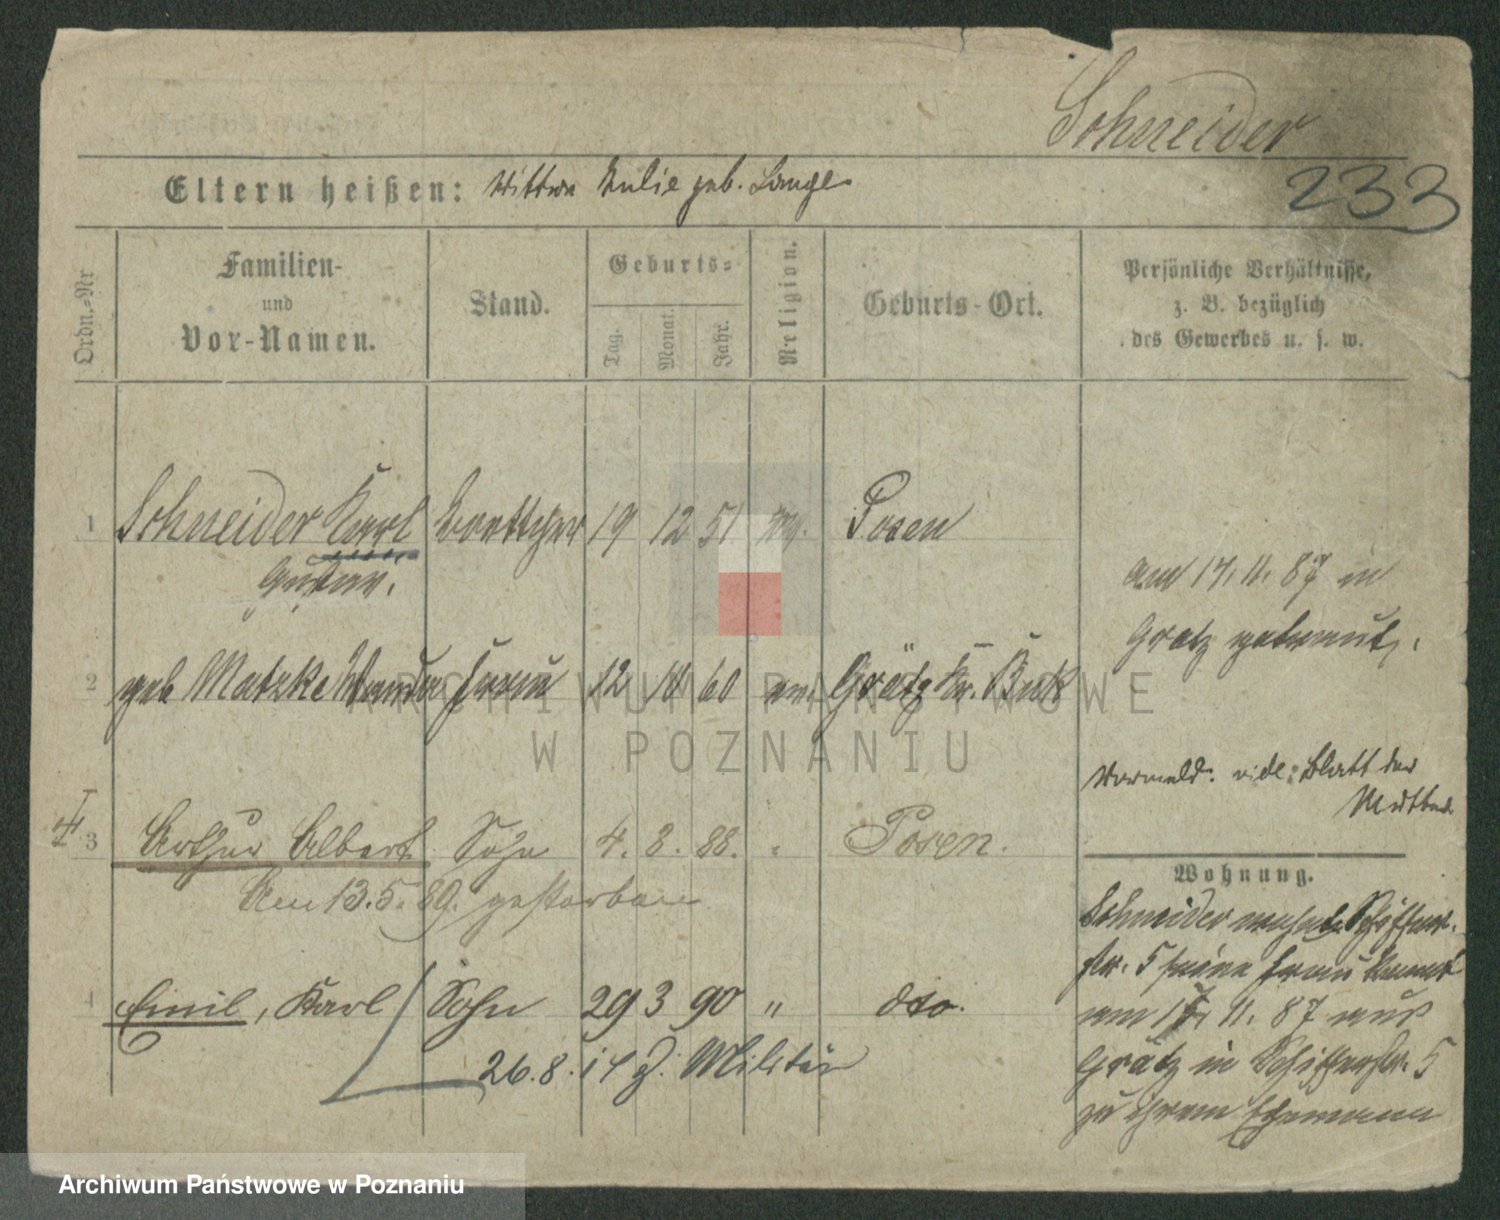 Schneider
233
Eltern heißen: Wittwe Julie geb. Lange
Ordn.-Nr
Familien-
und
Vor-Namen.
Stand.
Geburts-
Tag.
Monat.
Jahr.
Religion.
Geburts-Ort.
Persönliche Verhältnisse,
z. B. bezüglich
des Gewerbes u. s. w.
1 Schneider Karl Boettcher 19 12 51 Posen
Gustav.
am 17. 11. 87 in
Gratz getraut.
2 geb Matzke Wanda Frau 12 60 ev. Grätz Kr. Buk
Vormeld. vide: Blatt der
Mutter
3 Arthur Albert Sohn 4. 8. 88. Posen.
Am 13. 5. 89. gestorben
Wohnung.
Schneider wohnt Schiffer-
str. 5 seine Frau kommt
am 17. 11. 87 aus
Grätz in Schifferstr. 5
zu ihrem Ehemann
4 Emil, Karl Sohn 29 3 90 " dto.
26. 8. 14 z. Militär
ARCHIWUM PAŃSTWOWE
W POZNANIU
Archiwum Państwowe w Poznaniu